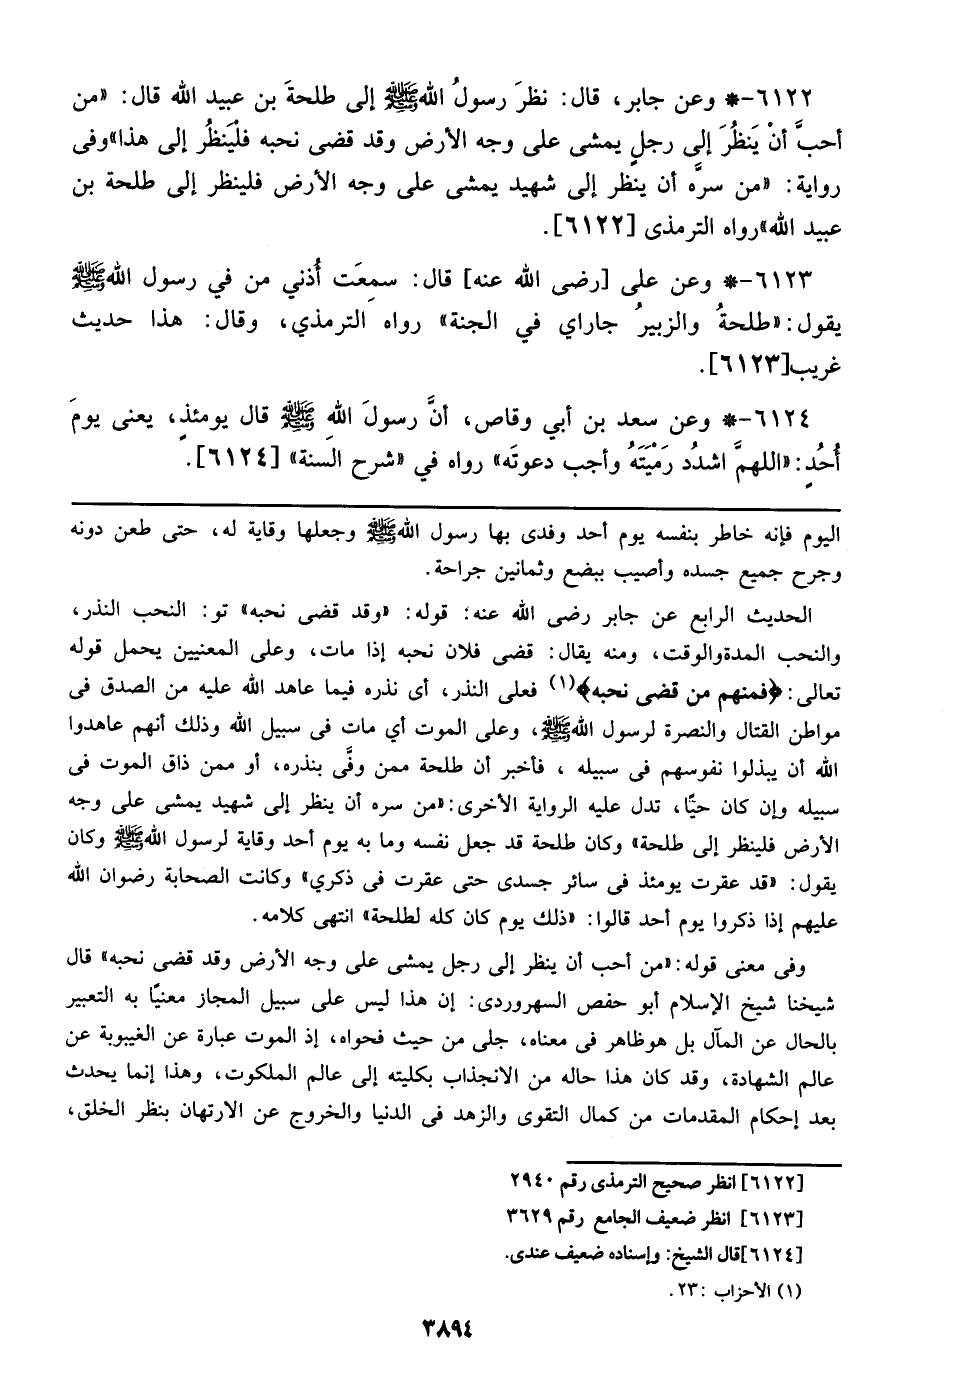 ٦١٢٢-* وعن جابر، قال: نظرَ رسولُ اللهﷺ إلى طلحةَ بن عبيد الله قال: «من
أحبَّ أنْ يَنظُرَ إلى رجلٍ يمشى على وجه الأرض وقد قضى نحبه فلْيَنظُر إلى هذا»وفى
رواية: «من سرَّه أن ينظر إلى شهيد يمشى على وجه الأرض فلينظر إلى طلحة بن
عبيد الله»رواه الترمذى [٦١٢٢].
٦١٢٣-* وعن على [رضى الله عنه] قال: سمِعَت أُذني من في رسول اللهﷺ
يقول:«طلحةُ والزبيرُ جاراي في الجنة» رواه الترمذي، وقال: هذا حديث
غريب[٦١٢٣].
٦١٢٤-* وعن سعد بن أبي وقاص، أنَّ رسولَ اللهِ ﷺ قال يومئذٍ، يعنى يومَ
أُحُدٍ:«اللهمَّ اشدُد رَمْيَتَهُ وأجب دعوتَه» رواه في «شرح السنة» [٦١٢٤].
اليوم فإنه خاطر بنفسه يوم أحد وفدى بها رسول اللهﷺ وجعلها وقاية له، حتى طعن دونه
وجرح جميع جسده وأصيب ببضع وثمانين جراحة.
الحديث الرابع عن جابر رضى الله عنه: قوله: «وقد قضى نحبه» تو: النحب النذر،
والنحب المدةوالوقت، ومنه يقال: قضى فلان نحبه إذا مات، وعلى المعنيين يحمل قوله
تعالى:﴿فمنهم من قضى نحبه﴾(١) فعلى النذر، أى نذره فيما عاهد الله عليه من الصدق فى
مواطن القتال والنصرة لرسول اللهﷺ، وعلى الموت أي مات فى سبيل الله وذلك أنهم عاهدوا
الله أن يبذلوا نفوسهم فى سبيله ، فأخبر أن طلحة ممن وفَّى بنذره، أو ممن ذاق الموت فى
سبيله وإن كان حيًّا، تدل عليه الرواية الأخرى:«من سره أن ينظر إلى شهيد يمشى على وجه
الأرض فلينظر إلى طلحة» وكان طلحة قد جعل نفسه وما به يوم أحد وقاية لرسول اللهﷺ وكان
يقول: «قد عقرت يومئذ فى سائر جسدى حتى عقرت فى ذكري» وكانت الصحابة رضوان الله
عليهم إذا ذكروا يوم أحد قالوا: «ذلك يوم كان كله لطلحة» انتهى كلامه.
وفى معنى قوله:«من أحب أن ينظر إلى رجل يمشى على وجه الأرض وقد قضى نحبه» قال
شيخنا شيخ الإسلام أبو حفص السهروردى: إن هذا ليس على سبيل المجاز معنيًا به التعبير
بالحال عن المآل بل هوظاهر فى معناه، جلى من حيث فحواه، إذ الموت عبارة عن الغيبوبة عن
عالم الشهادة، وقد كان هذا حاله من الانجذاب بكليته إلى عالم الملكوت، وهذا إنما يحدث
بعد إحكام المقدمات من كمال التقوى والزهد فى الدنيا والخروج عن الارتهان بنظر الخلق،
[٦١٢٢] انظر صحيح الترمذى رقم ٢٩٤٠
[٦١٢٣] انظر ضعيف الجامع رقم ٣٦٢٩
[٦١٢٤]قال الشيخ: وإسناده ضعيف عندى.
(١) الأحزاب :٢٣.
٣٨٩٤